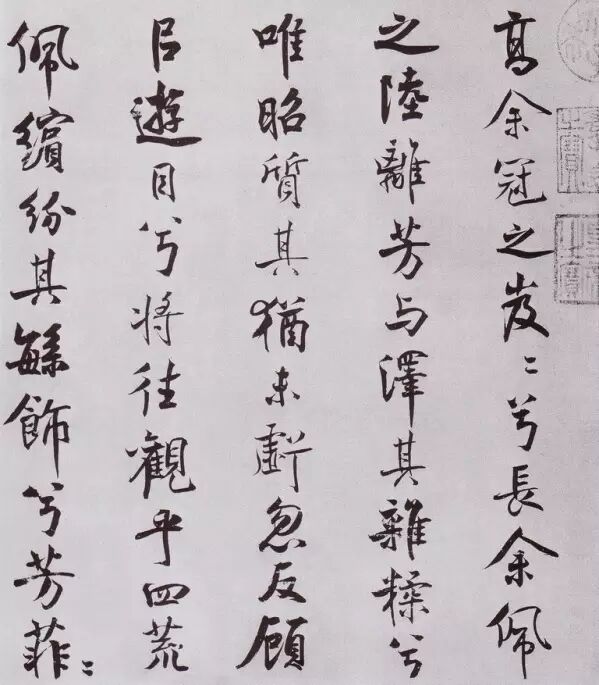 高余冠之岌〻兮長余佩
之陸離芳与澤其雜糅兮
唯昭質其猶未虧忽反顧
㠯遊目兮将往觀乎四荒
佩繽紛其緐飾兮芳菲〻